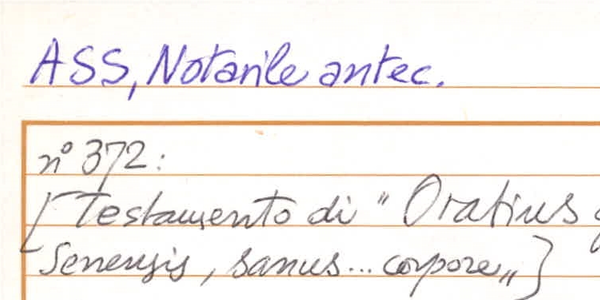 ASS, Notarile antec.
n° 372:
[Testamento di "Oratius
Senensis, sanus... corpore"]